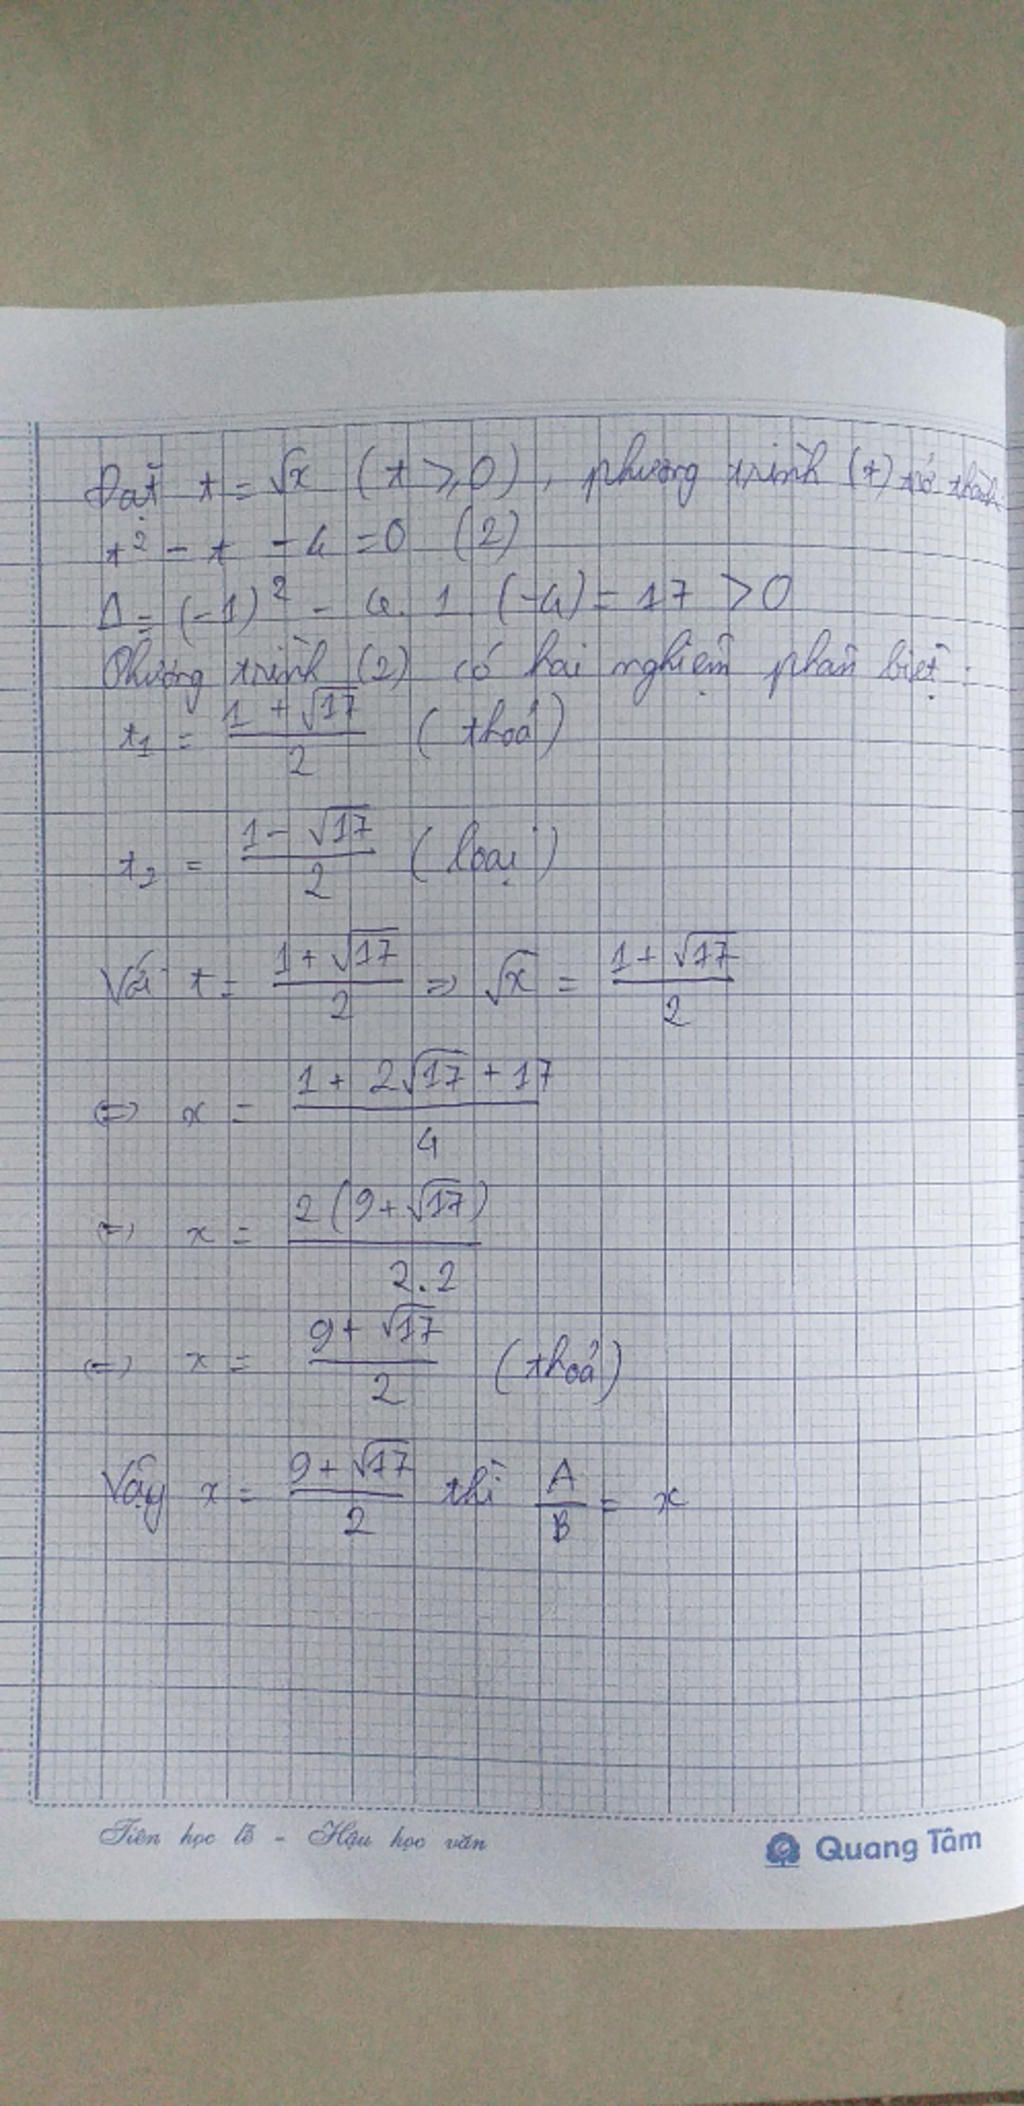 Đặt t = √x (t ≥ 0), phương trình (*) trở thành
t² - t - 4 = 0 (2)
Δ = (-1)² - 4. 1 (-4) = 17 > 0
Phương trình (2) có hai nghiệm phân biệt:
t₁ = (1 + √17)/2 (thoả)
t₂ = (1 - √17)/2 (loại)
Với t = (1 + √17)/2 => √x = (1 + √17)/2
<=> x = (1 + 2√17 + 17)/4
<=> x = 2(9 + √17)/2.2
<=> x = (9 + √17)/2 (thoả)
Vậy x = (9 + √17)/2 thì A/B = x
Tiên học lễ - Hậu học văn
Quang Tâm